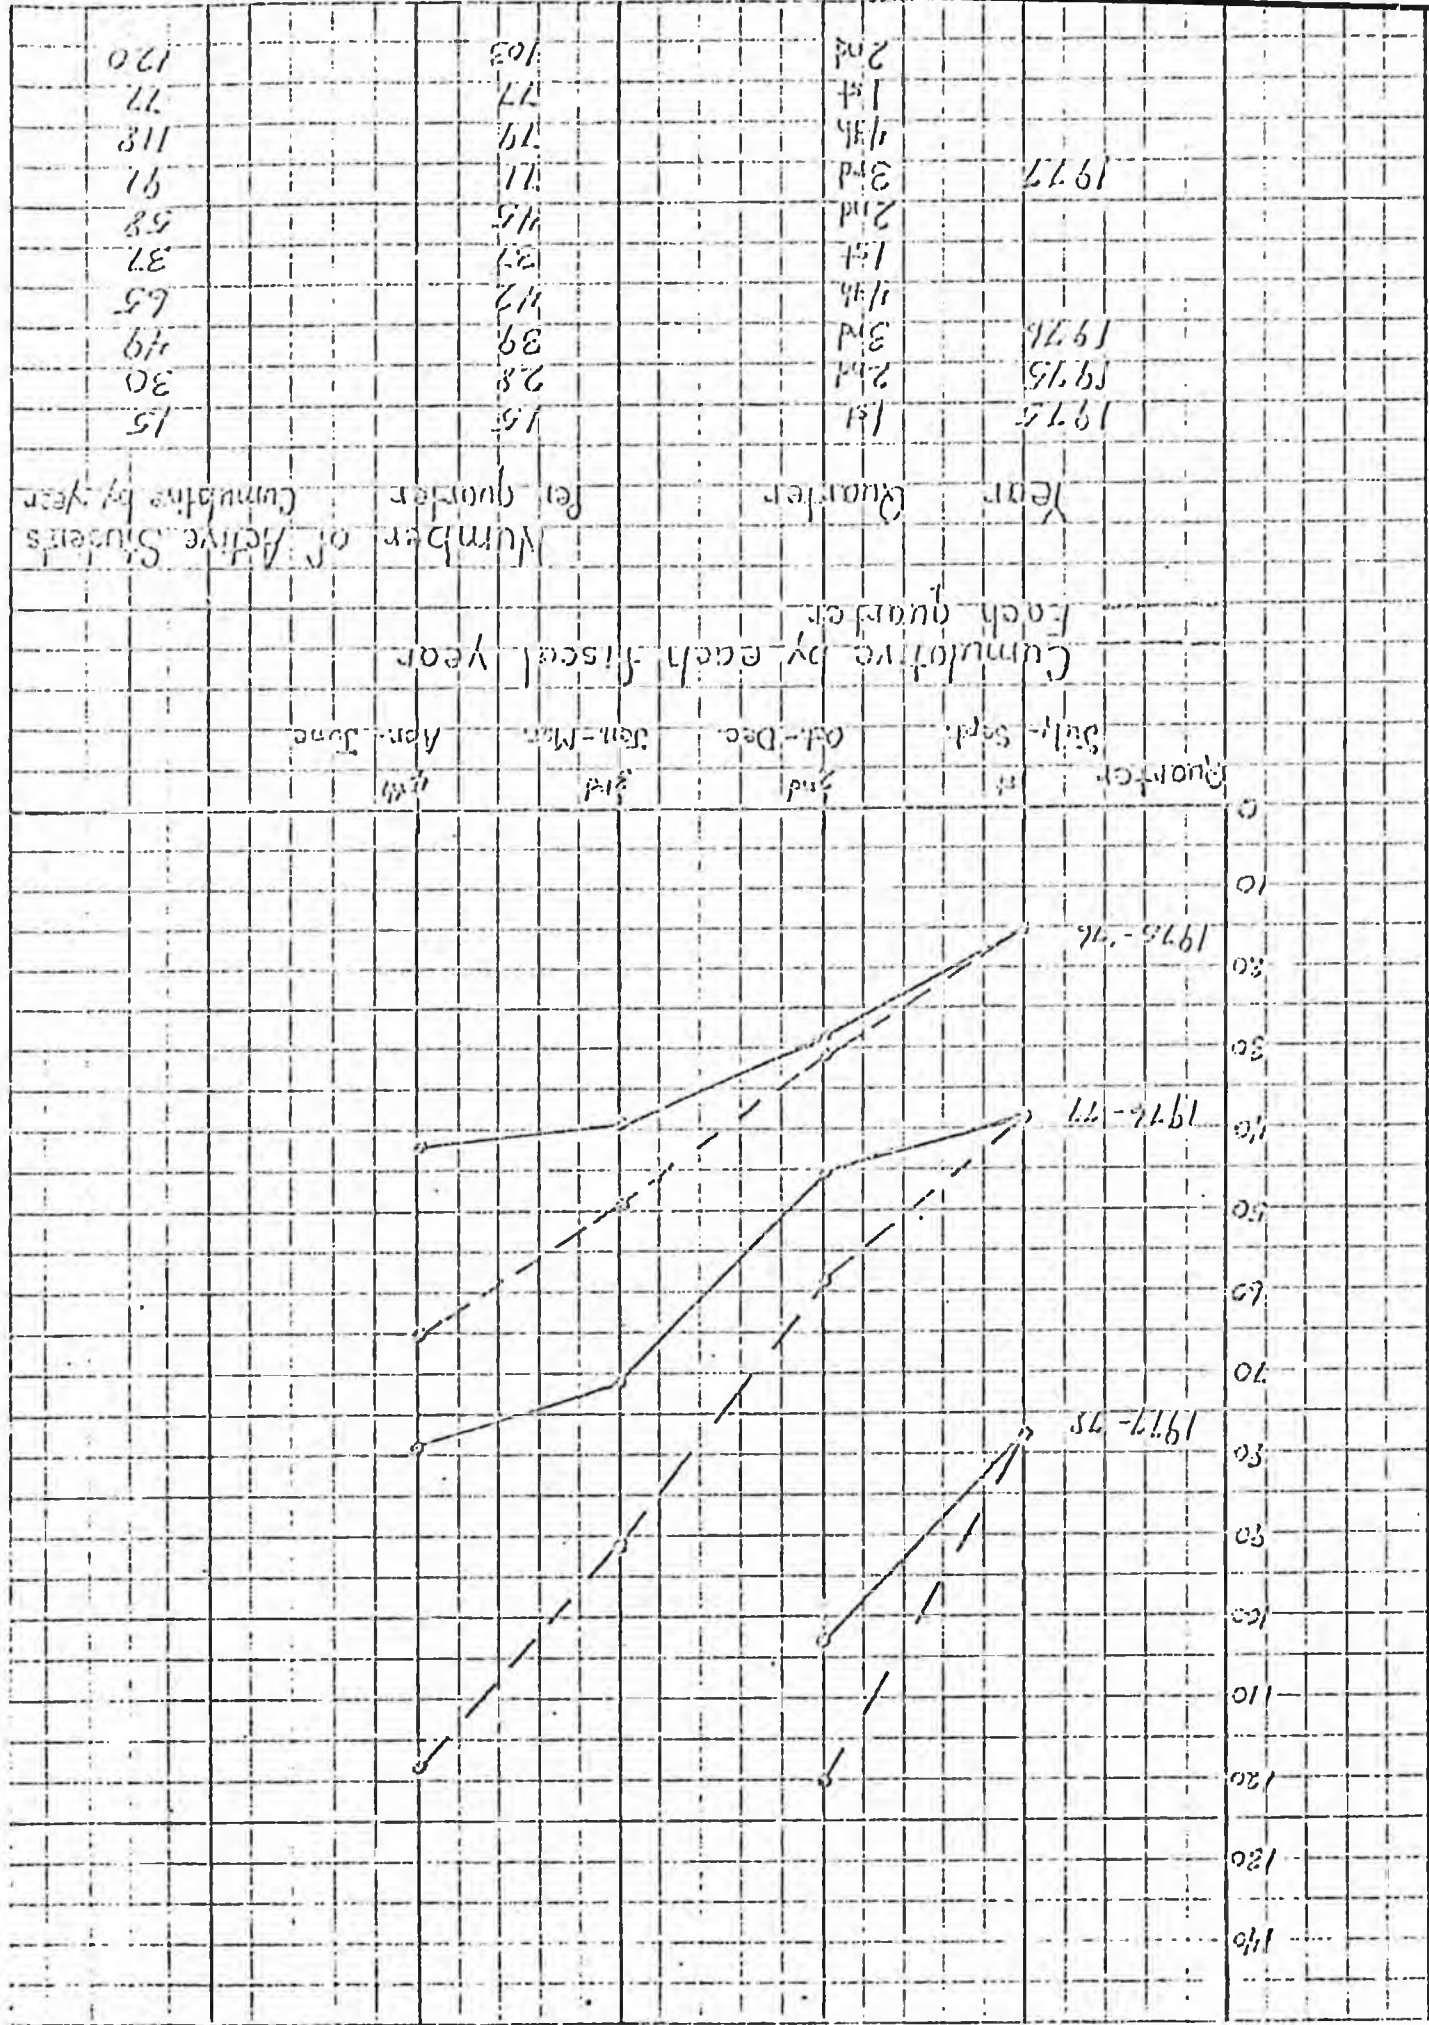 140
130
120
110
100
90
80
1977-78
70
60
50
40
1976-77
30
20
1975-'76
10
0
Quarter 1st 2nd 3rd 4th
July-Sept. Oct.-Dec. Jan.-Mar. Apr.-June
Cumulative by each fiscal year
Each quarter
Number of Active Students
Year Quarter Per quarter Cumulative by year
1975 1st 15 15
1975 2nd 28 30
1976 3rd 39 49
4th 42 65
1st 37 37
2nd 45 58
1977 3rd 71 91
4th 79 118
1st 77 77
2nd 103 120